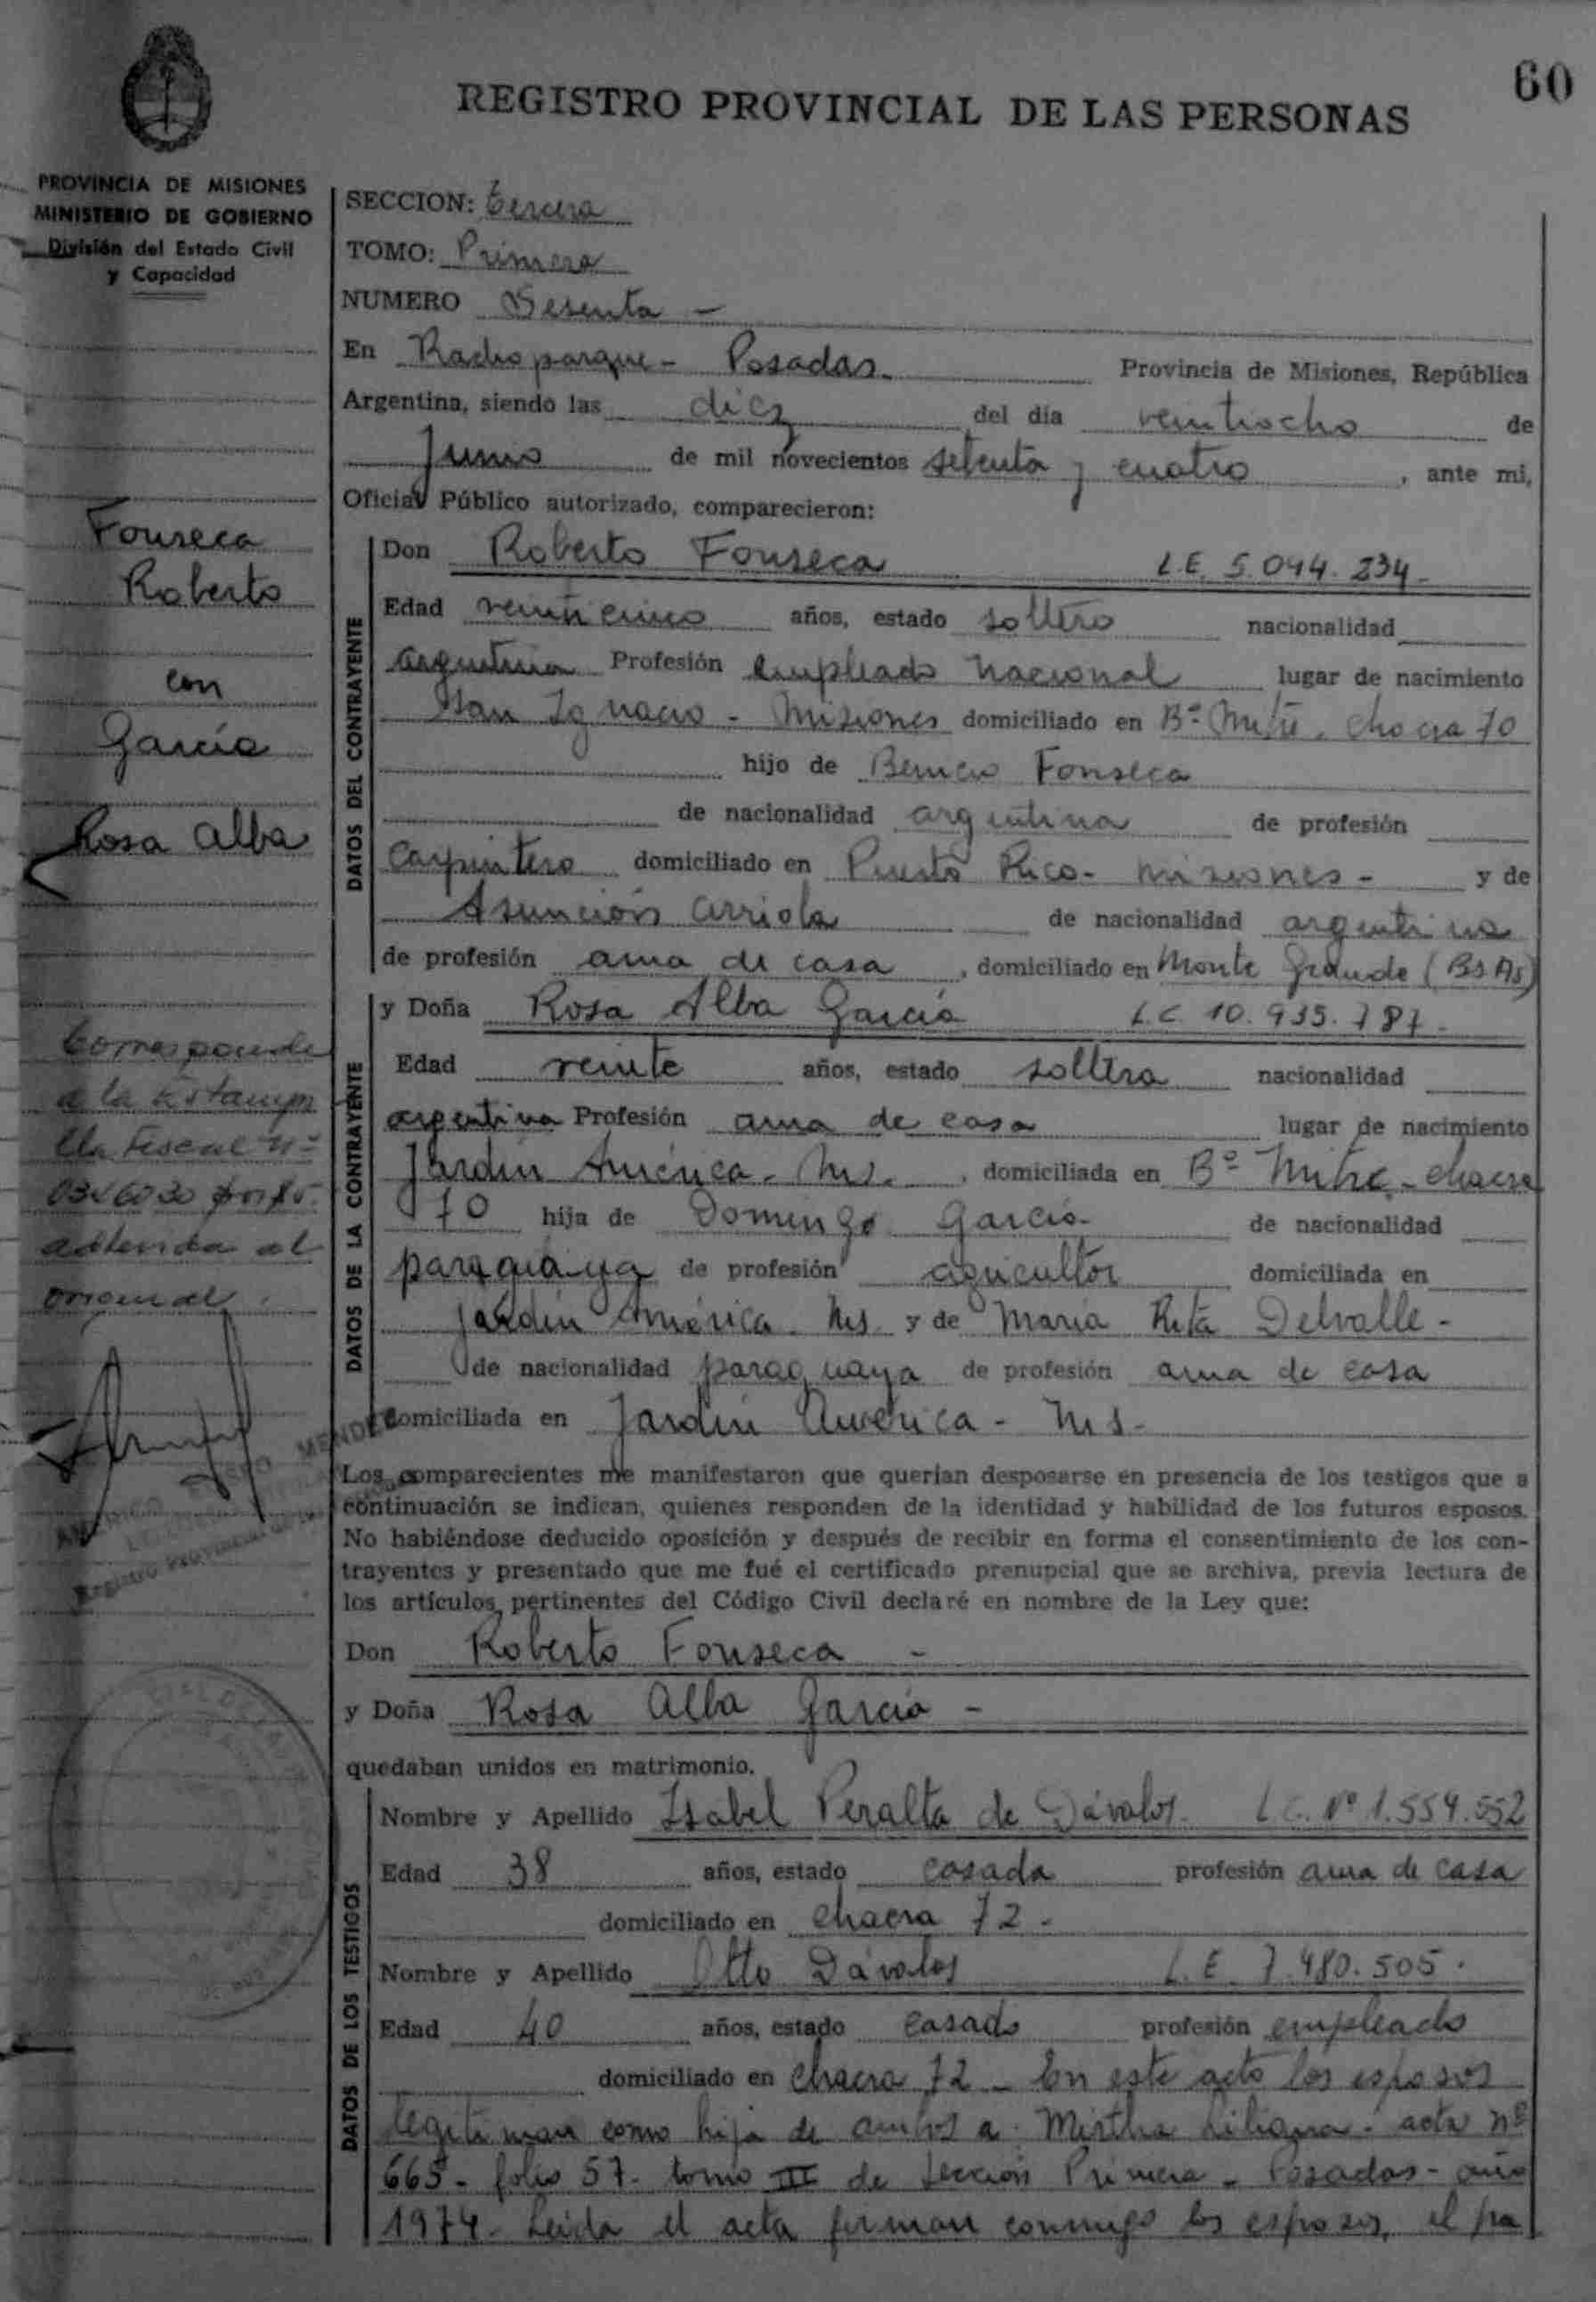 60
REGISTRO PROVINCIAL DE LAS PERSONAS
PROVINCIA DE MISIONES
MINISTERIO DE GOBIERNO
División del Estado Civil
y Capacidad
Fonseca
Roberto
con
García
Rosa Alba
Corresponde
a la Estampi
lla Fiscal Nº
adherida al
original.
SECCION: tercera
TOMO: Primero
NUMERO Sesenta -
En Radioparque - Posadas. Provincia de Misiones, República
Argentina, siendo las diez del día veintiocho de
Junio de mil novecientos setenta y cuatro, ante mi,
Oficial Público autorizado, comparecieron:
DATOS DEL CONTRAYENTE
Don Roberto Fonseca L.E. 5.044.234-
Edad veinticinco años, estado soltero nacionalidad
argentina Profesión empleado nacional lugar de nacimiento
San Ignacio - Misiones domiciliado en Bº Mitre. Chacra 70
hijo de Benicio Fonseca
de nacionalidad argentina de profesión
carpintero domiciliado en Puerto Rico - misiones - y de
Asunción Arriola de nacionalidad argentina
de profesión ama de casa, domiciliado en Monte Grande (Bs As)
DATOS DE LA CONTRAYENTE
y Doña Rosa Alba García L.C 10.935.787-
Edad veinte años, estado soltera nacionalidad
argentina Profesión ama de casa lugar de nacimiento
Jardín América - Ms. , domiciliada en Bº Mitre - chacra
70 hija de Domingo García - de nacionalidad
paraguaya de profesión agricultor domiciliada en
Jardín América. Ms. y de María Rita Delvalle -
de nacionalidad paraguaya de profesión ama de casa
domiciliada en Jardín América - Ms -
Los comparecientes me manifestaron que querían desposarse en presencia de los testigos que a
continuación se indican, quienes responden de la identidad y habilidad de los futuros esposos.
No habiéndose deducido oposición y después de recibir en forma el consentimiento de los con-
trayentes y presentado que me fué el certificado prenupcial que se archiva, previa lectura de
los artículos pertinentes del Código Civil declaré en nombre de la Ley que:
Don Roberto Fonseca -
y Doña Rosa Alba García -
quedaban unidos en matrimonio.
DATOS DE LOS TESTIGOS
Nombre y Apellido Isabel Peralta de Dávalos L.C. Nº 1.554.552
Edad 38 años, estado casada profesión ama de casa
domiciliado en chacra 72 -
Nombre y Apellido Otto Dávalos L.E. 7.480.505.
Edad 40 años, estado casado profesión empleado
domiciliado en chacra 72 - En este acto los esposos
legitiman como hija de ambos a Mirtha Liliana - acta nº
665 - folio 57 - tomo III de sección Primera - Posadas - año
1974 - Leida el acta firman conmigo los esposos, el pa